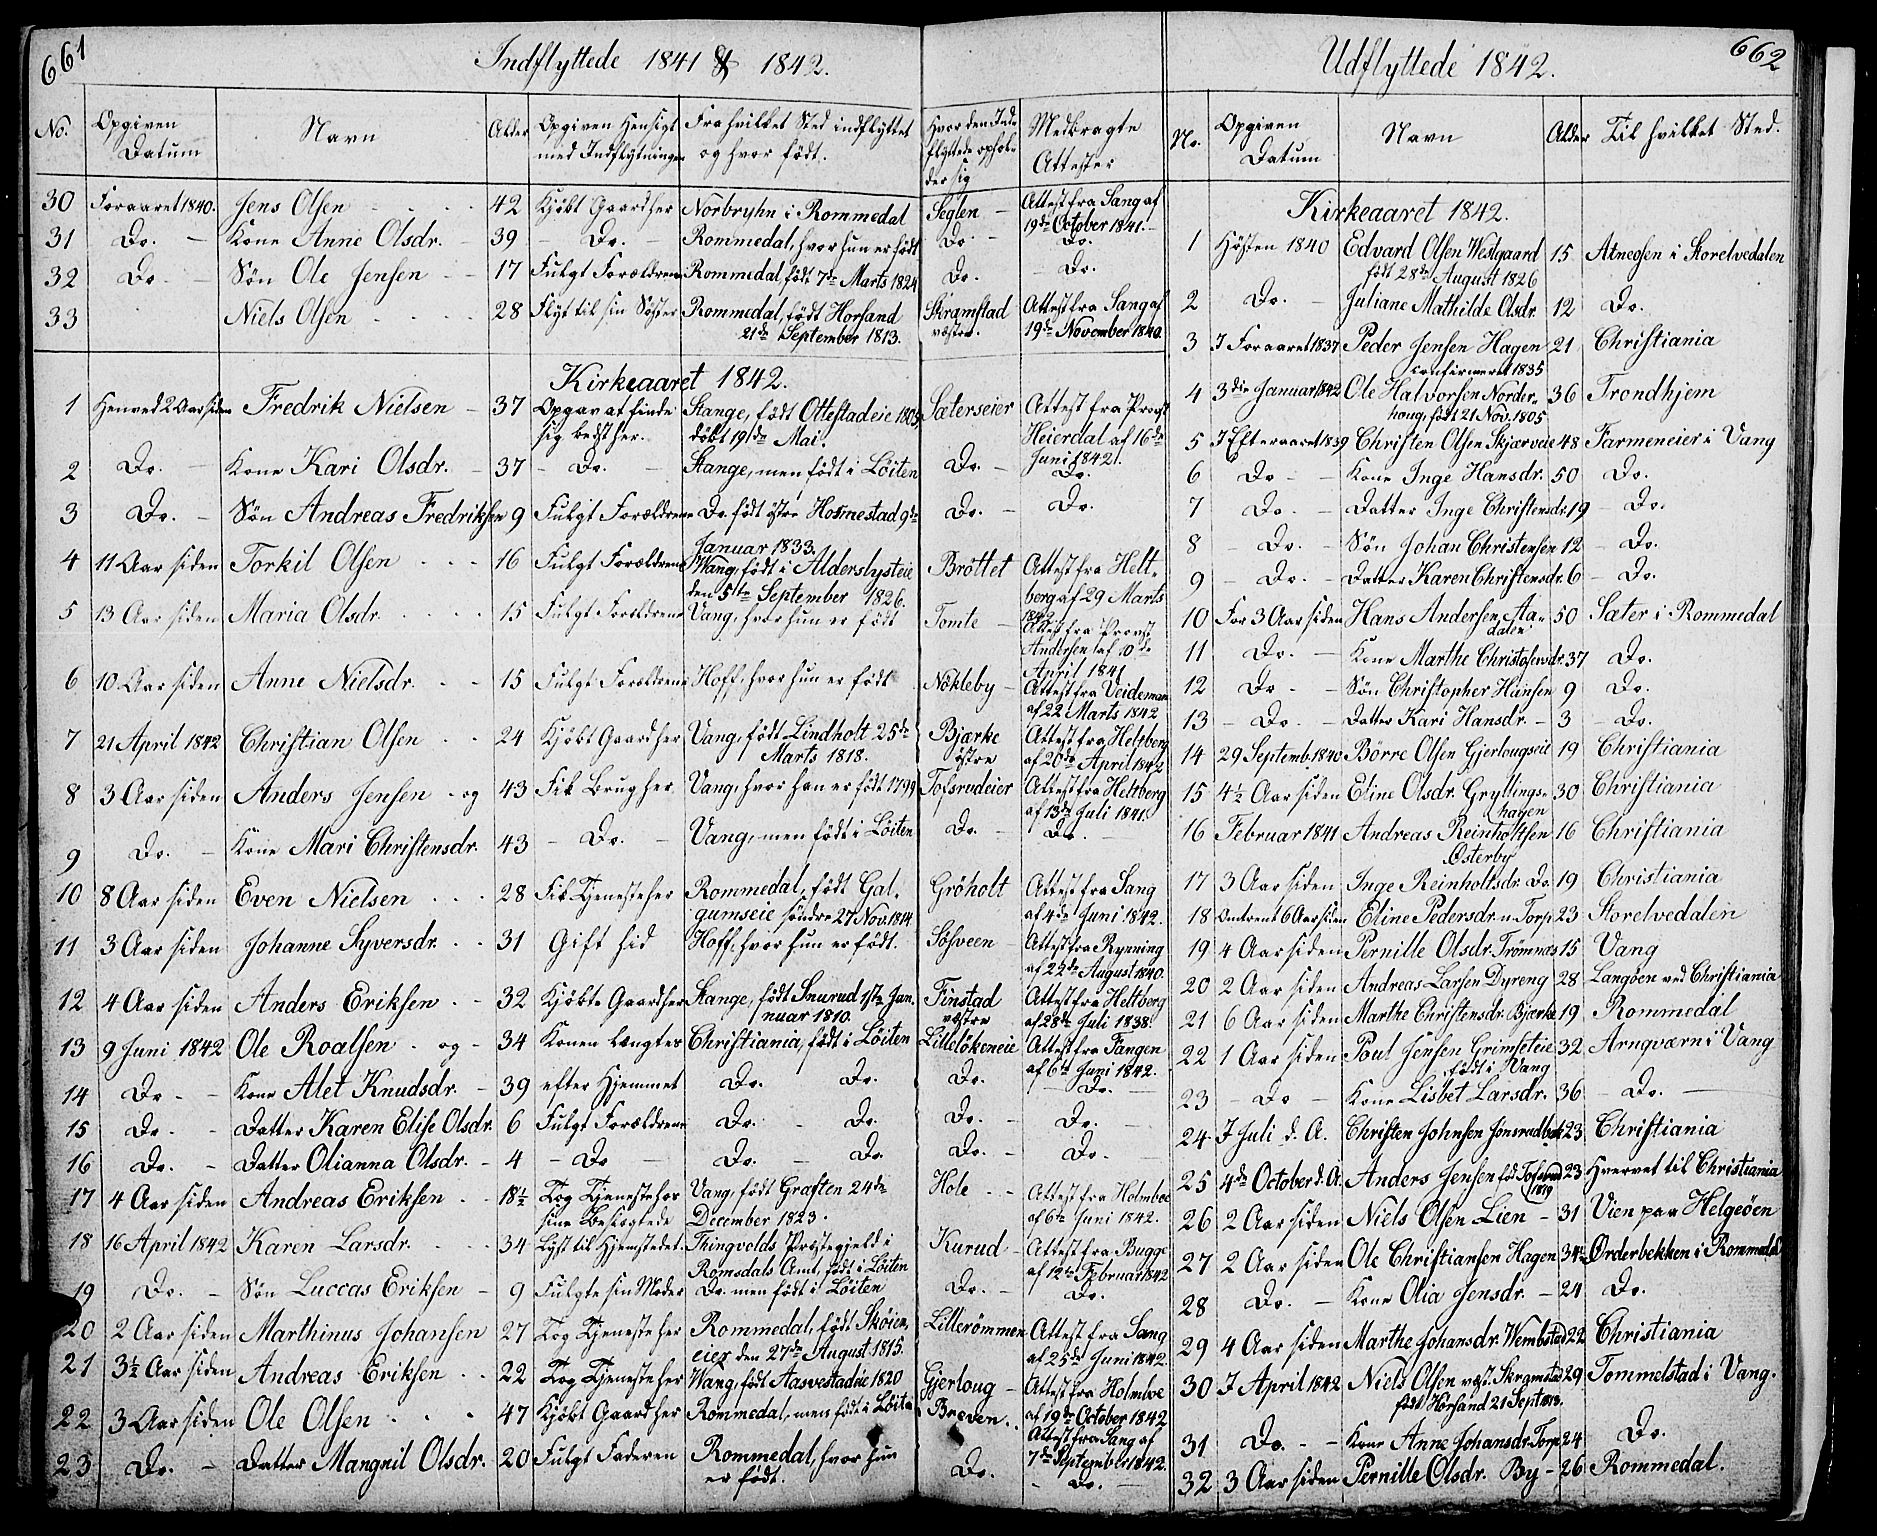 661
Indflyttede 1841 & 1842.
No. Opgiven Datum Navn Alder Opgiven Hensigt med Indflytningen Fra hvilket Sted indflyttet og hvor født. Hvor den Indflyttede opholder sig Medbragte Attester
30 Foraaret 1840. Jens Olsen 42 Kjøbt Gaard her Norbryhn i Rommedal Seglen Attest fra Sang af 19de October 1841.
31 Do. Kone Anne Olsdr. 39 Do. Rommedal, hvor hun er født Do. Do.
32 Do. Søn Ole Jensen 17 Fulgt Forældrene Rommedal, født 7de Marts 1824 Do. Do.
33 Niels Olsen 28 Flyt til sin Søster Rommedal, født Horsand 21de September 1813. Skramstad væstre. Attest fra Sang af 19de November 1840.
Kirkeaaret 1842.
1 Henved 2 Aar siden Fredrik Nielsen 37 Opgav at finde sig bedst her. Stange, født Ottestadeie 1805 døbt 19de Mai. Sæterseier Attest fra Provst Heierdal af 16de Juni 1842.
2 Do. Kone Kari Olsdr. 37 Do. Stange, men født i Løiten Do. Do.
3 Do. Søn Andreas Fredriksen 9 Fulgt Forældrene Do. født østre Hommestad 9de Januar 1833. Do. Do.
4 11 Aar siden Torkil Olsen 16 Fulgt Forældrene Wang, født i Alderslysteie den 5te September 1826. Brøttet Attest fra Heltberg af 29 Marts 1842
5 13 Aar siden Maria Olsdr. 15 Fulgt Forældrene Vang, hvor hun er født Tomte Attest fra Provst Andersen af 10de April 1841
6 10 Aar siden Anne Nielsdr. 15 Fulgt Forældrene Hoff, hvor hun er født Nøkleby Attest fra Veideman af 22 Marts 1842
7 21 April 1842 Christian Olsen 24 Kjøbt Gaard her Vang, født Lindholt 25de Marts 1818. Bjærke østre Attest fra Heltberg af 20de April 1842
8 3 Aar siden Anders Jensen og 43 Fik Brug her Vang, hvor han er født 1799 Tofsrudeier Attest fra Heltberg af 13de Juli 1841.
9 Do. Kone Mari Christensdr. 43 Do. Vang, men født i Løiten Do. Do.
10 8 Aar siden Even Nielsen 28 Fik Tjeneste her Rommedal, født Galgumseie søndre 27 Nov. 1814 Grøholt Attest fra Sang af 4de Juni 1842.
11 3 Aar siden Johanne Syversdr. 31 Gift hid Hoff, hvor hun er født. Søsveen Attest fra Rynning af 22de August 1840.
12 4 Aar siden Anders Eriksen 32 Kjøbte Gaard her Stange, født Snurud 1ste Januar 1810. Finstad væstre Attest fra Heltberg af 28de Juli 1838.
13 9 Juni 1842 Ole Roalsen og 34 Konen længtes Christiania, født i Løiten Lilleløkeneie Attest fra Fangen af 6te Juni 1842.
14 Do. Kone Alet Knudsdr. 39 efter Hjemmet Do. Do. Do. Do.
15 Do. Datter Karen Elise Olsdr. 6 Fulgt Forældrene Do. Do. Do. Do.
16 Do. Datter Olianna Olsdr. 4 Do Do. Do. Do. Do.
17 4 Aar siden Andreas Eriksen 18½ Tog Tjeneste hos sine Beslægtede Vang, født Graften 24de December 1823. Hole Attest fra Holmboe af 6te Juni 1842.
18 16 April 1842 Karen Larsdr. 34 Lyst til Hjemstedet. Thingvolds Præstegjeld i Romsdals Amt, født i Løiten Kurud Attest fra Bugge af 12te Februar 1842
19 Do. Søn Luccas Eriksen 9 Fulgte sin Moder Do. men født i Løiten Do. Do.
20 2 Aar siden Marthinus Johansen 27 Tog Tjeneste her Rommedal, født Skøieneier den 27de August 1815. Lillerømmen Attest fra Sang af 25de Juni 1842.
21 3½ Aar siden Andreas Eriksen 22 Tog Tjeneste her Wang, født Aasvestadeie 1820 Gjerloug Attest fra Holmboe af 19de October 1842
22 3 Aar siden Ole Olsen 47 Kjøbt Gaard her Rommedal, men født i Løiten Breven. Attest fra Sang af 7de September 1842.
23 Do. Datter Mangnil Olsdr. 20 Fulgt Faderen Rommedal, hvor hun er født. Do. Do.
662
Udflyttede 1842.
No. Opgiven Datum Navn Alder Til hvilket Sted.
Kirkeaaret 1842.
1 Høsten 1840 Edvard Olsen Westgaard født 28de August 1826 15 Atneosen i Storelvedalen
2 Do. Juliane Mathilde Olsdr. 12 Do.
3 I Foraaret 1837 Peder Jensen Hagen confirmeret 1835 21 Christiania
4 3die Januar 1842 Ole Halvorsen Norderhoug, født 21 Nov. 1805 36 Trondhjem
5 I Efteraaret 1839 Christen Olsen Skjærveie 48 Farmeneier i Vang
6 Do Kone Inge Hansdr. 50 Do.
7 Do. Datter Inge Christensdr. 19 Do.
8 Do. Søn Johan Christensen 12 Do.
9 Do. Datter Karen Christensdr. 6 Do.
10 For 3 Aar siden Hans Andersen Aadalen 50 Sæter i Rommedal
11 Do. Kone Marthe Christofersdr. 37 Do.
12 Do Søn Christopher Hansen 9 Do.
13 Do. Datter Kari Hansdr. 3 Do.
14 29 Septemb. 1840 Børre Olsen Gjerlougseie 19 Christiania
15 4½ Aar siden Eline Olsdr. Gryllingshagen 30 Christiania
16 Februar 1841 Andreas Reinholtsen Østerby 16 Christiania
17 3 Aar siden Inge Reinholtsdr. Do. 19 Christiania
18 Omtrent 6 Aar siden Eline Pedersdr. n. Torp 23 Storelvedalen
19 4 Aar siden Pernille Olsdr. Trømnæs 15 Vang
20 2 Aar siden Andreas Larsen Dyreng 28 Langøen ved Christiania
21 6 Aar siden Marthe Christensdr. Bjærke 19 Rommedal
22 1 Aar siden Poul Jensen Grimseteie født i Vang 32 Arnqværn i Vang
23 Do Kone Lisbet Larsdr. 36 Do.
24 I Juli d. A. Christen Johnsen Jonsrudbak 23 Christiania
25 4de October d. A. Anders Jensen fød Tofsrud 1819 23 Hvervet til Christiania
26 2 Aar siden Niels Olsen Lien 31 Vien paa Helgøen
27 2 Aar siden Ole Christiansen Hagen 34½ Ørderbekken i Rommedal
28 Do. Kone Olia Jensdr. 24 Do.
29 4 Aar siden Marthe Johansdr. Wembstad 22 Christiania
30 I April 1842 Niels Olsen væst. Skramstad født Horsand 21 Sept. 1813. 29 Tommelstad i Vang.
31 Do. Kone Anne Johansdr. Torp 24 Do.
32 3 Aar siden Pernille Olsdr. By 26 Rommedal.